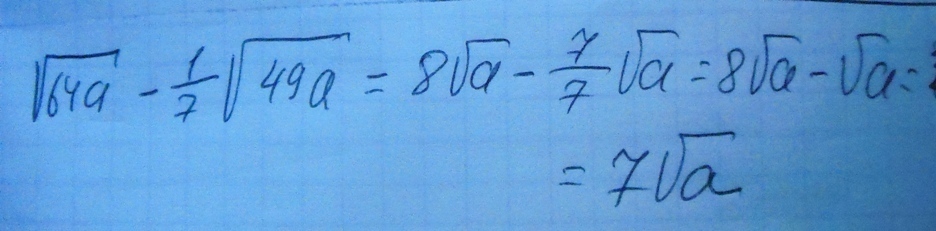 √64a - 1/7 √49a = 8√a - 7/7 √a = 8√a - √a =
= 7√a